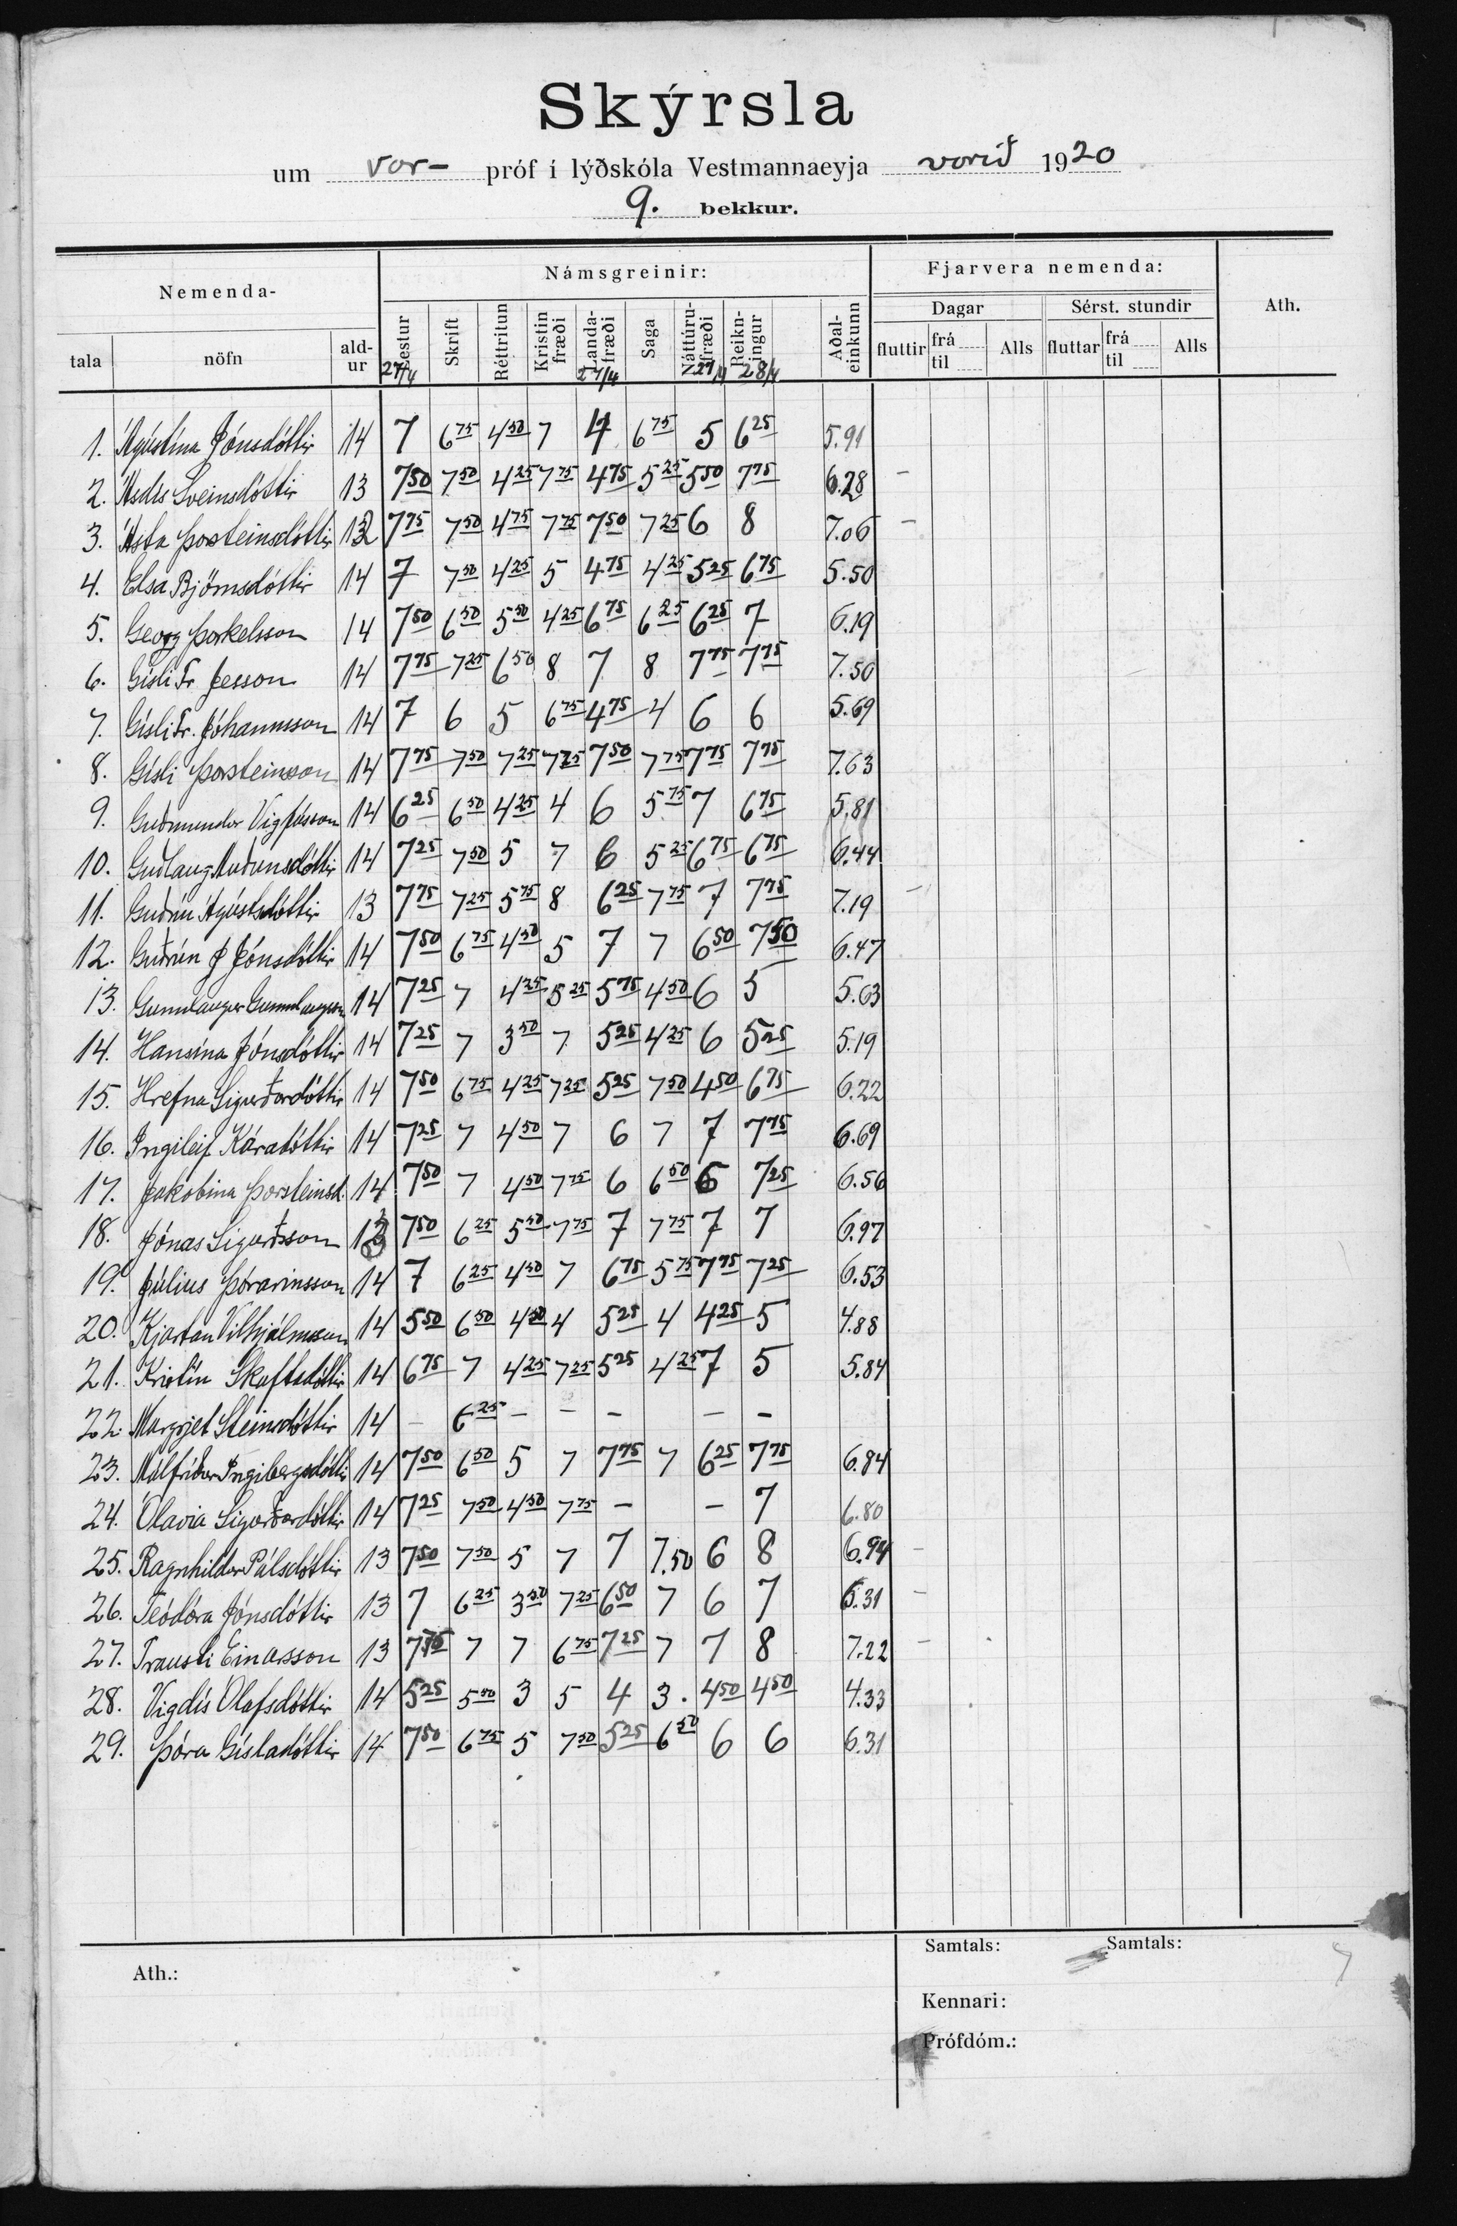 Skýrsla
um vor- próf í lýðskóla Vestmannaeyja vorið 1920
9. bekkur.
Nemenda- Námsgreinir: Fjarvera nemenda: Ath.
Dagar Sérst. stundir
tala nöfn ald-ur Lestur Skrift Réttritun Kristin fræði Landa-fræði Saga Náttúru-fræði Reikn-ingur Aðal-einkunn fluttir frá til Alls fluttar frá til Alls
27/4 27/4 27/4 28/4
1. Ágústína Jónsdóttir 14 7 6 75 4 50 7 4 6 75 5 6 25 5.91
2. Ásdís Sveinsdóttir 13 7 50 7 50 4 25 7 75 4 75 5 25 5 50 7 75 6.28 –
3. Ásta Þorsteinsdóttir 13 7 75 7 50 4 75 7 75 7 50 7 25 6 8 7.06 –
4. Elsa Björnsdóttir 14 7 7 50 4 25 5 4 75 4 25 5 25 6 75 5.50
5. Georg Þorkelsson 14 7 50 6 50 5 50 4 25 6 75 6 25 6 25 7 6.19
6. Gísli Fr Jesson 14 7 75 7 25 6 50 8 7 8 7 75 7 75 7.50
7. Gísli Fr. Jóhannsson 14 7 6 5 6 75 4 75 4 6 6 5.69
8. Gísli Þorsteinsson 14 7 75 7 50 7 25 7 25 7 50 7 75 7 75 7 75 7.63
9. Guðmundur Vigfússon 14 6 25 6 50 4 25 4 6 5 75 7 6 75 5.81
10. Guðlaug Auðunsdóttir 14 7 25 7 50 5 7 6 5 25 6 75 6 75 6.44
11. Guðrún Ágústsdóttir 13 7 75 7 25 5 75 8 6 25 7 75 7 7 75 7.19 –
12. Guðrún J Jónsdóttir 14 7 50 6 75 4 50 5 7 7 6 50 7 50 6.47
13. Gunnlaugur Gunnlaugsson 14 7 25 7 4 25 5 25 5 75 4 50 6 5 5.63
14. Hansína Jónsdóttir 14 7 25 7 3 50 7 5 25 4 25 6 5 25 5.19
15. Hrefna Sigurðardóttir 14 7 50 6 75 4 25 7 25 5 25 7 50 4 50 6 75 6.22
16. Ingileif Káradóttir 14 7 25 7 4 50 7 6 7 7 7 75 6.69
17. Jakobína Þorsteinsd. 14 7 50 7 4 50 7 75 6 6 50 6 7 25 6.56
18. Jónas Sigurðsson 13 7 50 6 25 5 50 7 75 7 7 75 7 7 6.97
19. Júlíus Þórarinsson 14 7 6 25 4 50 7 6 75 5 75 7 75 7 25 6.53
20. Kjartan Vilhjálmsson 14 5 50 6 50 4 50 4 5 25 4 4 25 5 4.88
21. Kristín Skaftadóttir 14 6 75 7 4 25 7 25 5 25 4 25 7 5 5.84
22. Margrjet Steinsdóttir 14 – 6 25 – – – – –
23. Málfríður Ingibergsdóttir 14 7 50 6 50 5 7 7 75 7 6 25 7 75 6.84
24. Ólavía Sigurðardóttir 14 7 25 7 50 4 50 7 75 – – 7 6.80
25. Ragnhildur Pálsdóttir 13 7 50 7 50 5 7 7 7.50 6 8 6.94 –
26. Teódóra Jónsdóttir 13 7 6 25 3 50 7 25 6 50 7 6 7 6.31 –
27. Trausti Einarsson 13 7 75 7 7 6 75 7 25 7 7 8 7.22 –
28. Vigdís Ólafsdóttir 14 5 25 5 50 3 5 4 3. 4 50 4 50 4.33
29. Þóra Gísladóttir 14 7 50 6 75 5 7 50 5 25 6 50 6 6 6.31
Samtals: Samtals:
Ath.:
Kennari:
Prófdóm.: